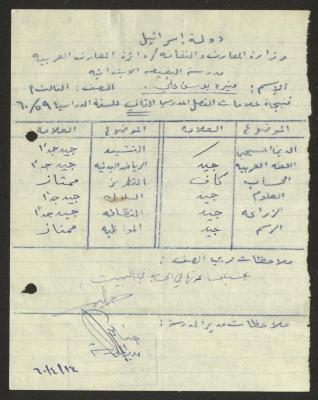 دولة إسرائيل
وزارة المعارف والثقافة / دائرة المعارف العربية
مدرسة البقيعة الابتدائية
الاسم : منيرة يوسف علي . الصف : الثالث أ
نتيجة علامات الفصل المدرسي الثاني للسنة الدراسية ٦٠/٥٩
الموضوع العلامة الموضوع العلامة
الدين المسيحي النشيد جيد جدًا
اللغة العربية جيد الرياضة البدنية جيد جدًا
الحساب كاف التطريز ممتاز
العلوم جيد السلوك جيد جدًا
الزراعة جيد النظافة جيد جدًا
الرسم جيد المواظبة ممتاز
ملاحظات مربي الصف :
في البيت
ملاحظات مدير المدرسة :
مدير المدرسة
٦٠/٤/١٤